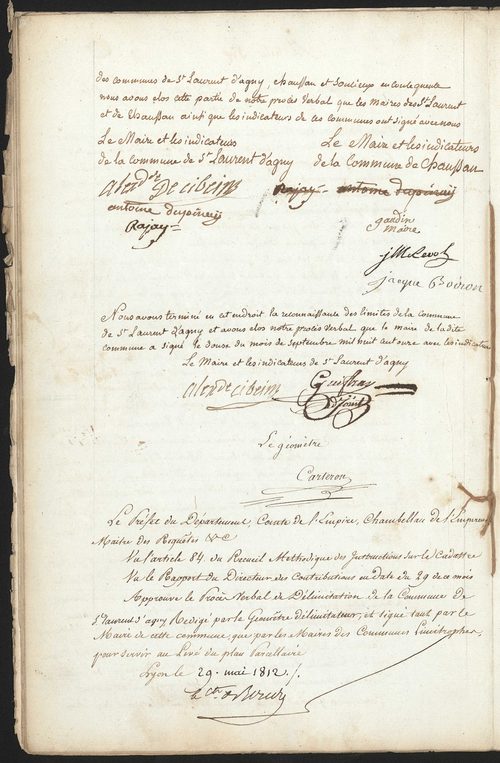 des communes de St Laurent d'agny, chaussan et soucieux en conséquente
nous avons clos cette partie de notre procès verbal que les maires des St Laurent
et de Chaussan ainsi que les indicateurs de ces communes ont signé avec nous
Le Maire et les indicateurs
de la commune de St Laurent d'agny
Le Maire et les indicateurs
de la Commune de Chaussan
antoine
Rajay
Rajay antoine
gaudin
maire
jacque Boiron
Nous avons terminé en cet endroit la reconnaissance des limites de la commune
de St Laurent d'agny et avons clos notre procès verbal que le maire de la dite
commune a signé le douse du mois de septembre mil huit cent onze avec les indicateurs
Le Maire et les indicateurs de St Laurent d'agny
Le géomètre
Carteron
Le Préfet du Département, Comte de l'Empire, Chambellan de l'Empereur
Maitre des Requêtes &c
Vu l'article 84. du Recueil Méthodique des Instructions sur le Cadastre
Vu le Rapport du Directeur des Contributions en date du 29 de ce mois
Approuve le Procès Verbal de Délimitation de la Commune de
St Laurent d'agny Rédigé par le Géomètre délimitateur, et signé tant par le
Maire de cette commune, que par les Maires des Communes limitrophes,
pour servir au Levé du plan Parcellaire
Lyon le 29. mai 1812 ./.